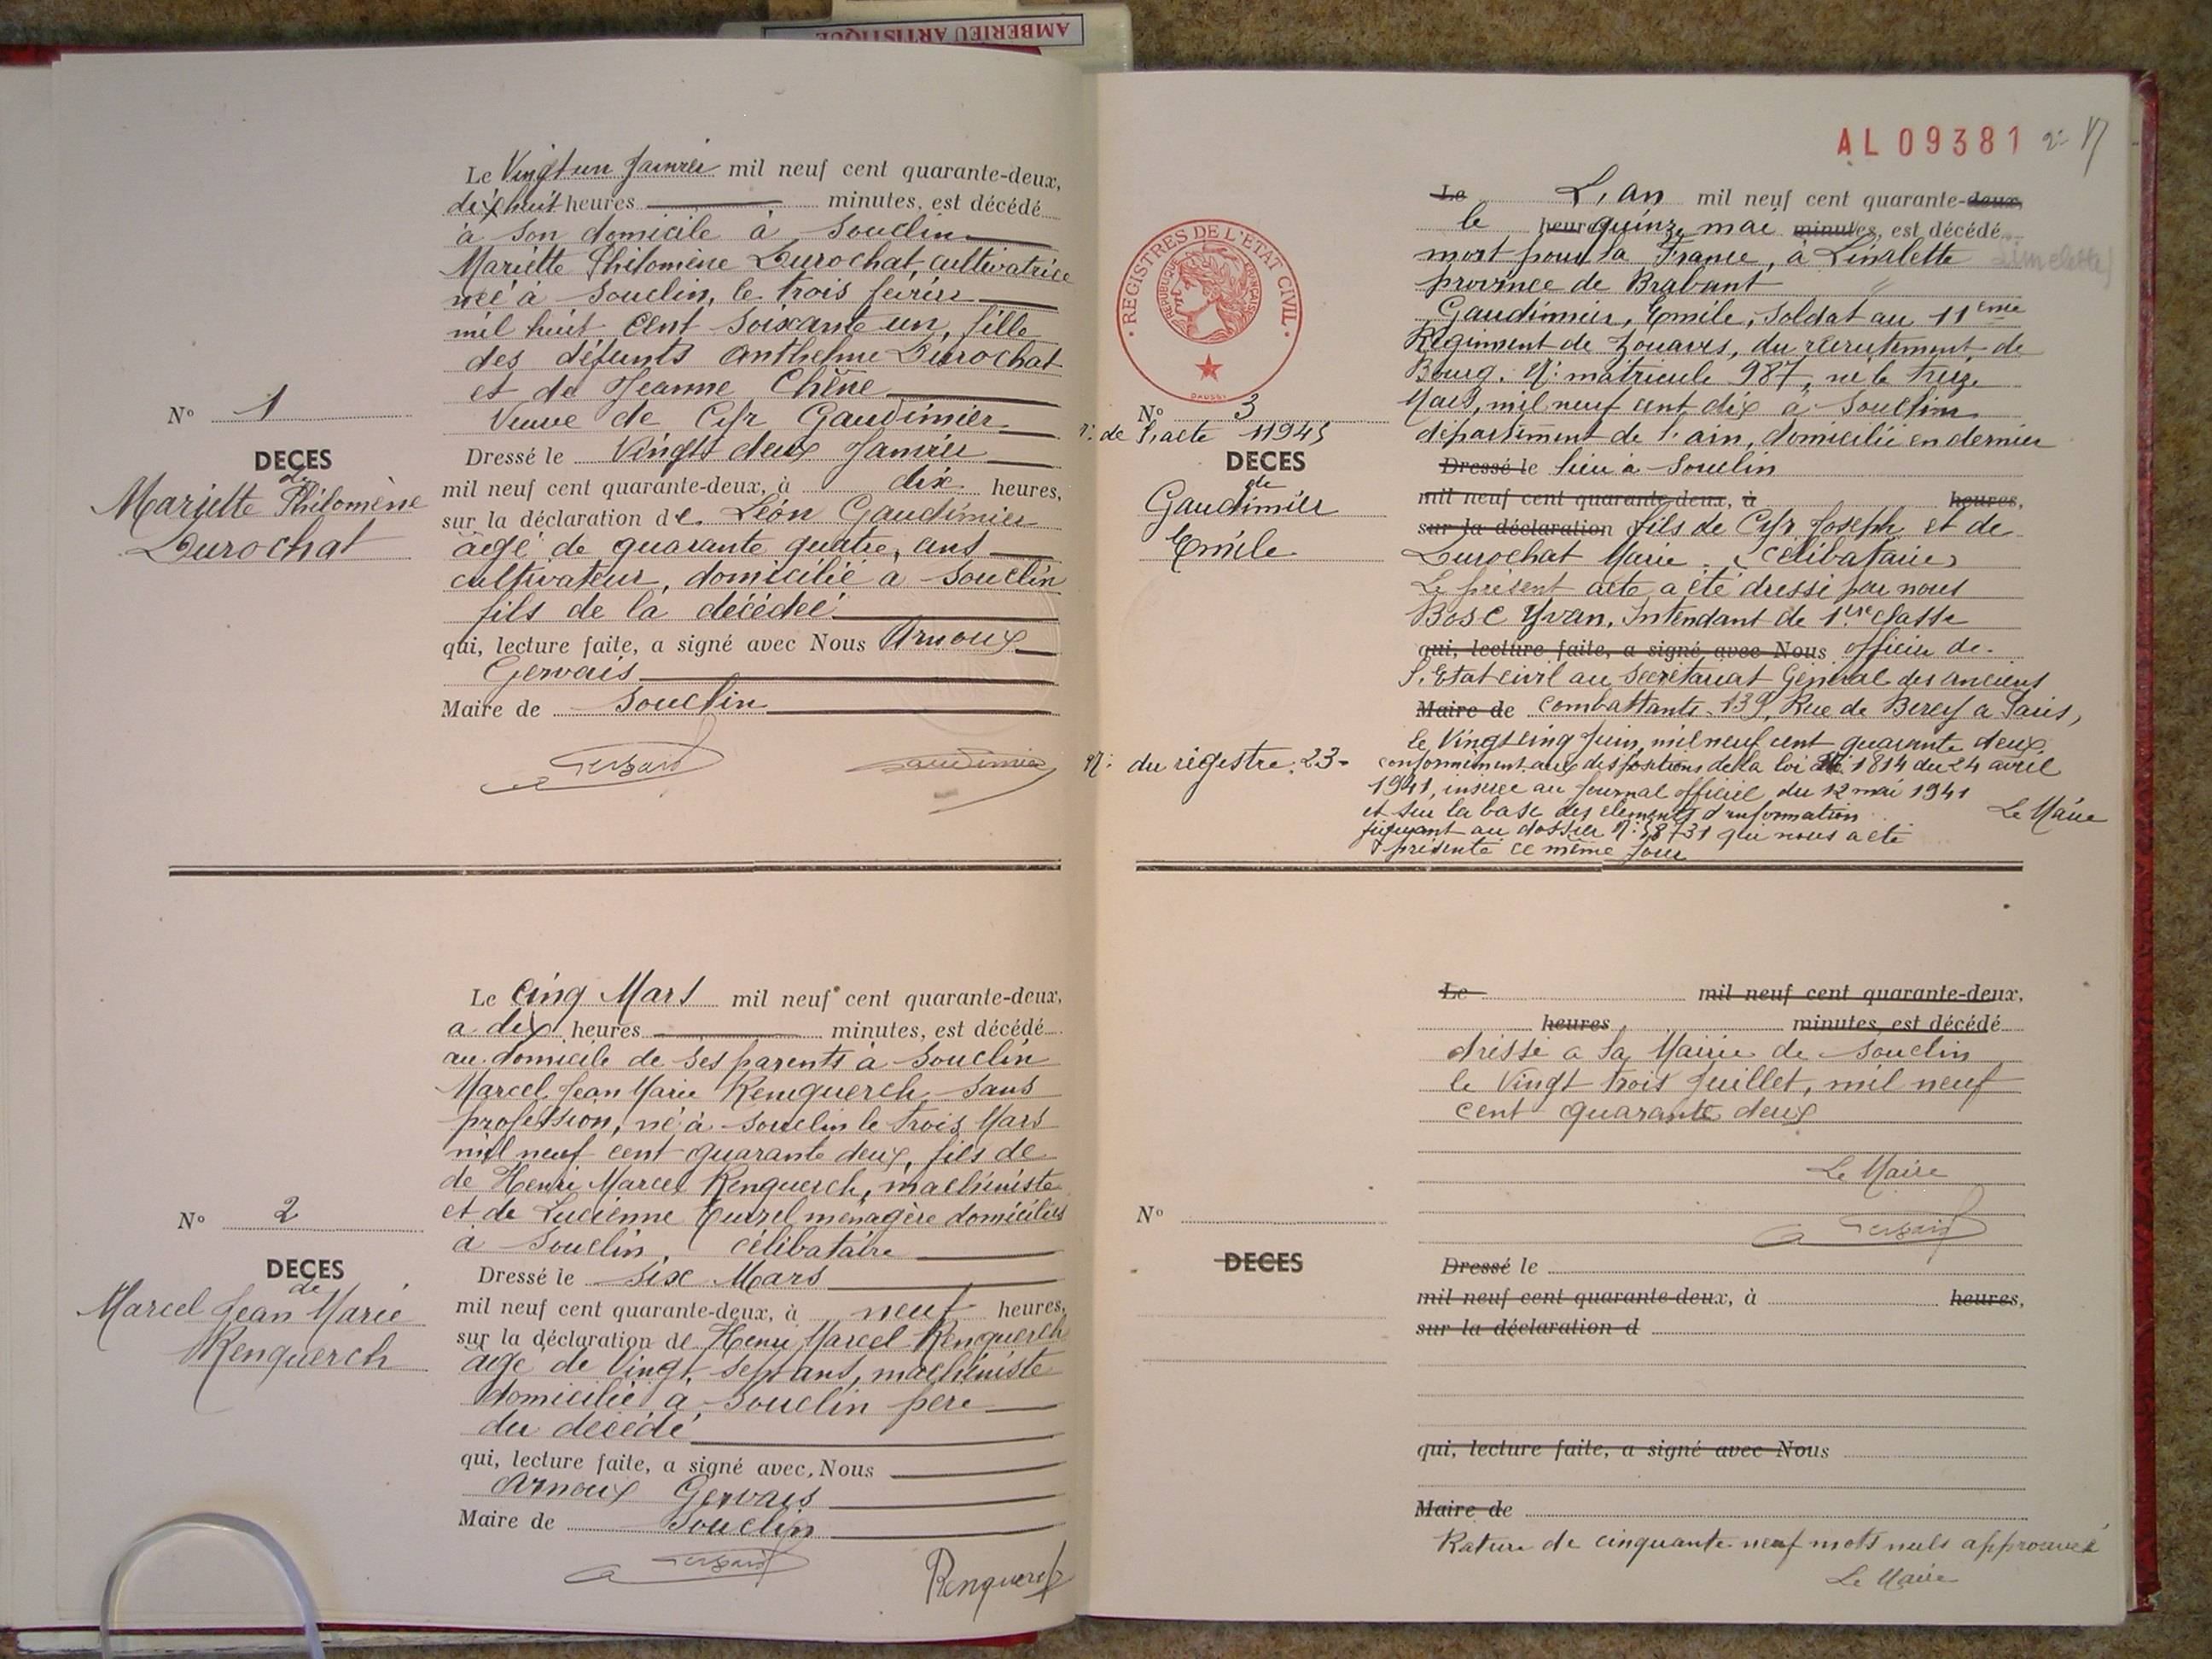 AMBERIEU ARTISTIQUE
Le Vingt un Janvier mil neuf cent quarante-deux,
dix huit heures minutes, est décédé
à son domicile à Souclin
Mariette Philomène Durochat, cultivatrice
née à Souclin, le trois février
mil huit cent soixante un, fille
des défunts Anthelme Durochat
et de Jeanne Chêne
Veuve de Cyr Gaudimier
N° 1
DECES
de
Mariette Philomène
Durochat
Dressé le Vingt deux Janvier
mil neuf cent quarante-deux, à dix heures,
sur la déclaration de Léon Gaudimier
âgé de quarante quatre ans
cultivateur, domicilié à Souclin
fils de la décédée
qui, lecture faite, a signé avec Nous Arnoux
Gervais
Maire de Souclin
Gaudimier
Le Cinq Mars mil neuf cent quarante-deux,
a dix heures minutes, est décédé
au domicile de ses parents à Souclin
Marcel Jean Marie Renquerch sans
profession, né à Souclin le trois Mars
mil neuf cent quarante deux, fils de
de Henri Marcel Renquerch, machiniste
et de Lucienne ménagère domiciliés
à Souclin. célibataire
N° 2
DECES
de
Marcel Jean Marie
Renquerch
Dressé le Six Mars
mil neuf cent quarante-deux, à neuf heures,
sur la déclaration de Henri Marcel Renquerch
âgé de Vingt sept ans, machiniste
domicilié à Souclin père
du décédé
qui, lecture faite, a signé avec Nous
Arnoux Gervais
Maire de Souclin
Renquerch
AL 09381 2
REGISTRES DE L'ETAT CIVIL
REPUBLIQUE FRANÇAISE
Le L'an mil neuf cent quarante-deux,
le heures quinze mai minutes, est décédé
mort pour la France, à Limelette Limelette
province de Brabant
Gaudimier, Emile, soldat au 11ème
Régiment de Zouaves, du recrutement de
Bourg. N° matricule 987, né le treize
Mars, mil neuf cent dix à Souclin
département de l'ain, domicilié en dernier
N° 3
N° de l'acte 11943
DECES
de
Gaudimier
Emile
Dressé le lieu à Souclin
mil neuf cent quarante-deux, à heures,
sur la déclaration d fils de Cyr Joseph et de
Durochat Marie. célibataire
Le présent acte a été dressé par nous
Bosc Yvan, Intendant de 1ère classe
qui, lecture faite, a signé avec Nous officier de
l'Etat civil au Secrétariat Général des anciens
Maire de Combattants 139, Rue de Bercy a Paris,
le Vingt cinq Juin, mil neuf cent quarante deux
N° du registre 23
conformément aux dispositions de la loi 1814 du 24 avril
1941, insérée au Journal officiel du 12 mai 1941
et sur la base des éléments d'information
figurant au dossier N° 58731 qui nous a été
présenté ce même jour
Le Maire
Le mil neuf cent quarante-deux,
heures minutes, est décédé
dressé a la Mairie de Souclin
le Vingt trois Juillet, mil neuf
cent quarante deux
Le Maire
N°
DECES
Dressé le
mil neuf cent quarante-deux, à heures,
sur la déclaration d
qui, lecture faite, a signé avec Nous
Maire de
Rature de cinquante neuf mots nuls approuvé
Le Maire